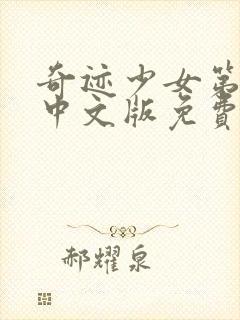 奇迹少女第
中文版免费
郝耀泉